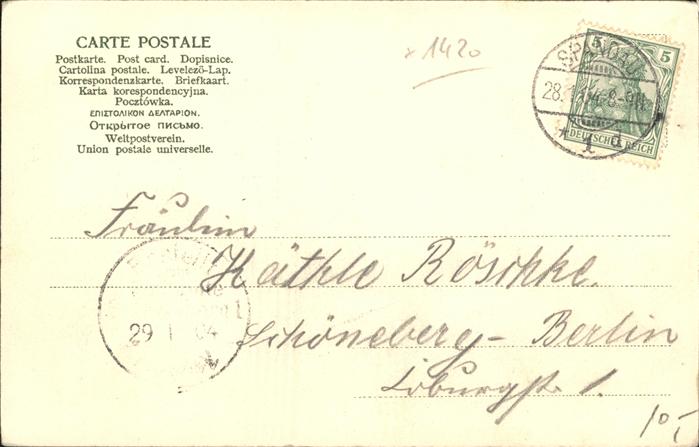 CARTE POSTALE
Postkarte. Post card. Dopisnice.
Cartolina postale. Levelező-Lap.
Korrespondenzkarte. Briefkaart.
Karta korespondencyjna.
Pocztówka.
ΕΠΙΣΤΟΛΙΚΟΝ ΔΕΛΤΑΡΙΟΝ.
Открытое письмо.
Weltpostverein.
Union postale universelle.
x 1420
5 5
SPANDAU
28.1.04.8-9N.
* 1 d
DEUTSCHES REICH
Fräulein
Käthle Röschke.
Schöneberg-Berlin
Loburgst. 1.
29 1 04
10,-